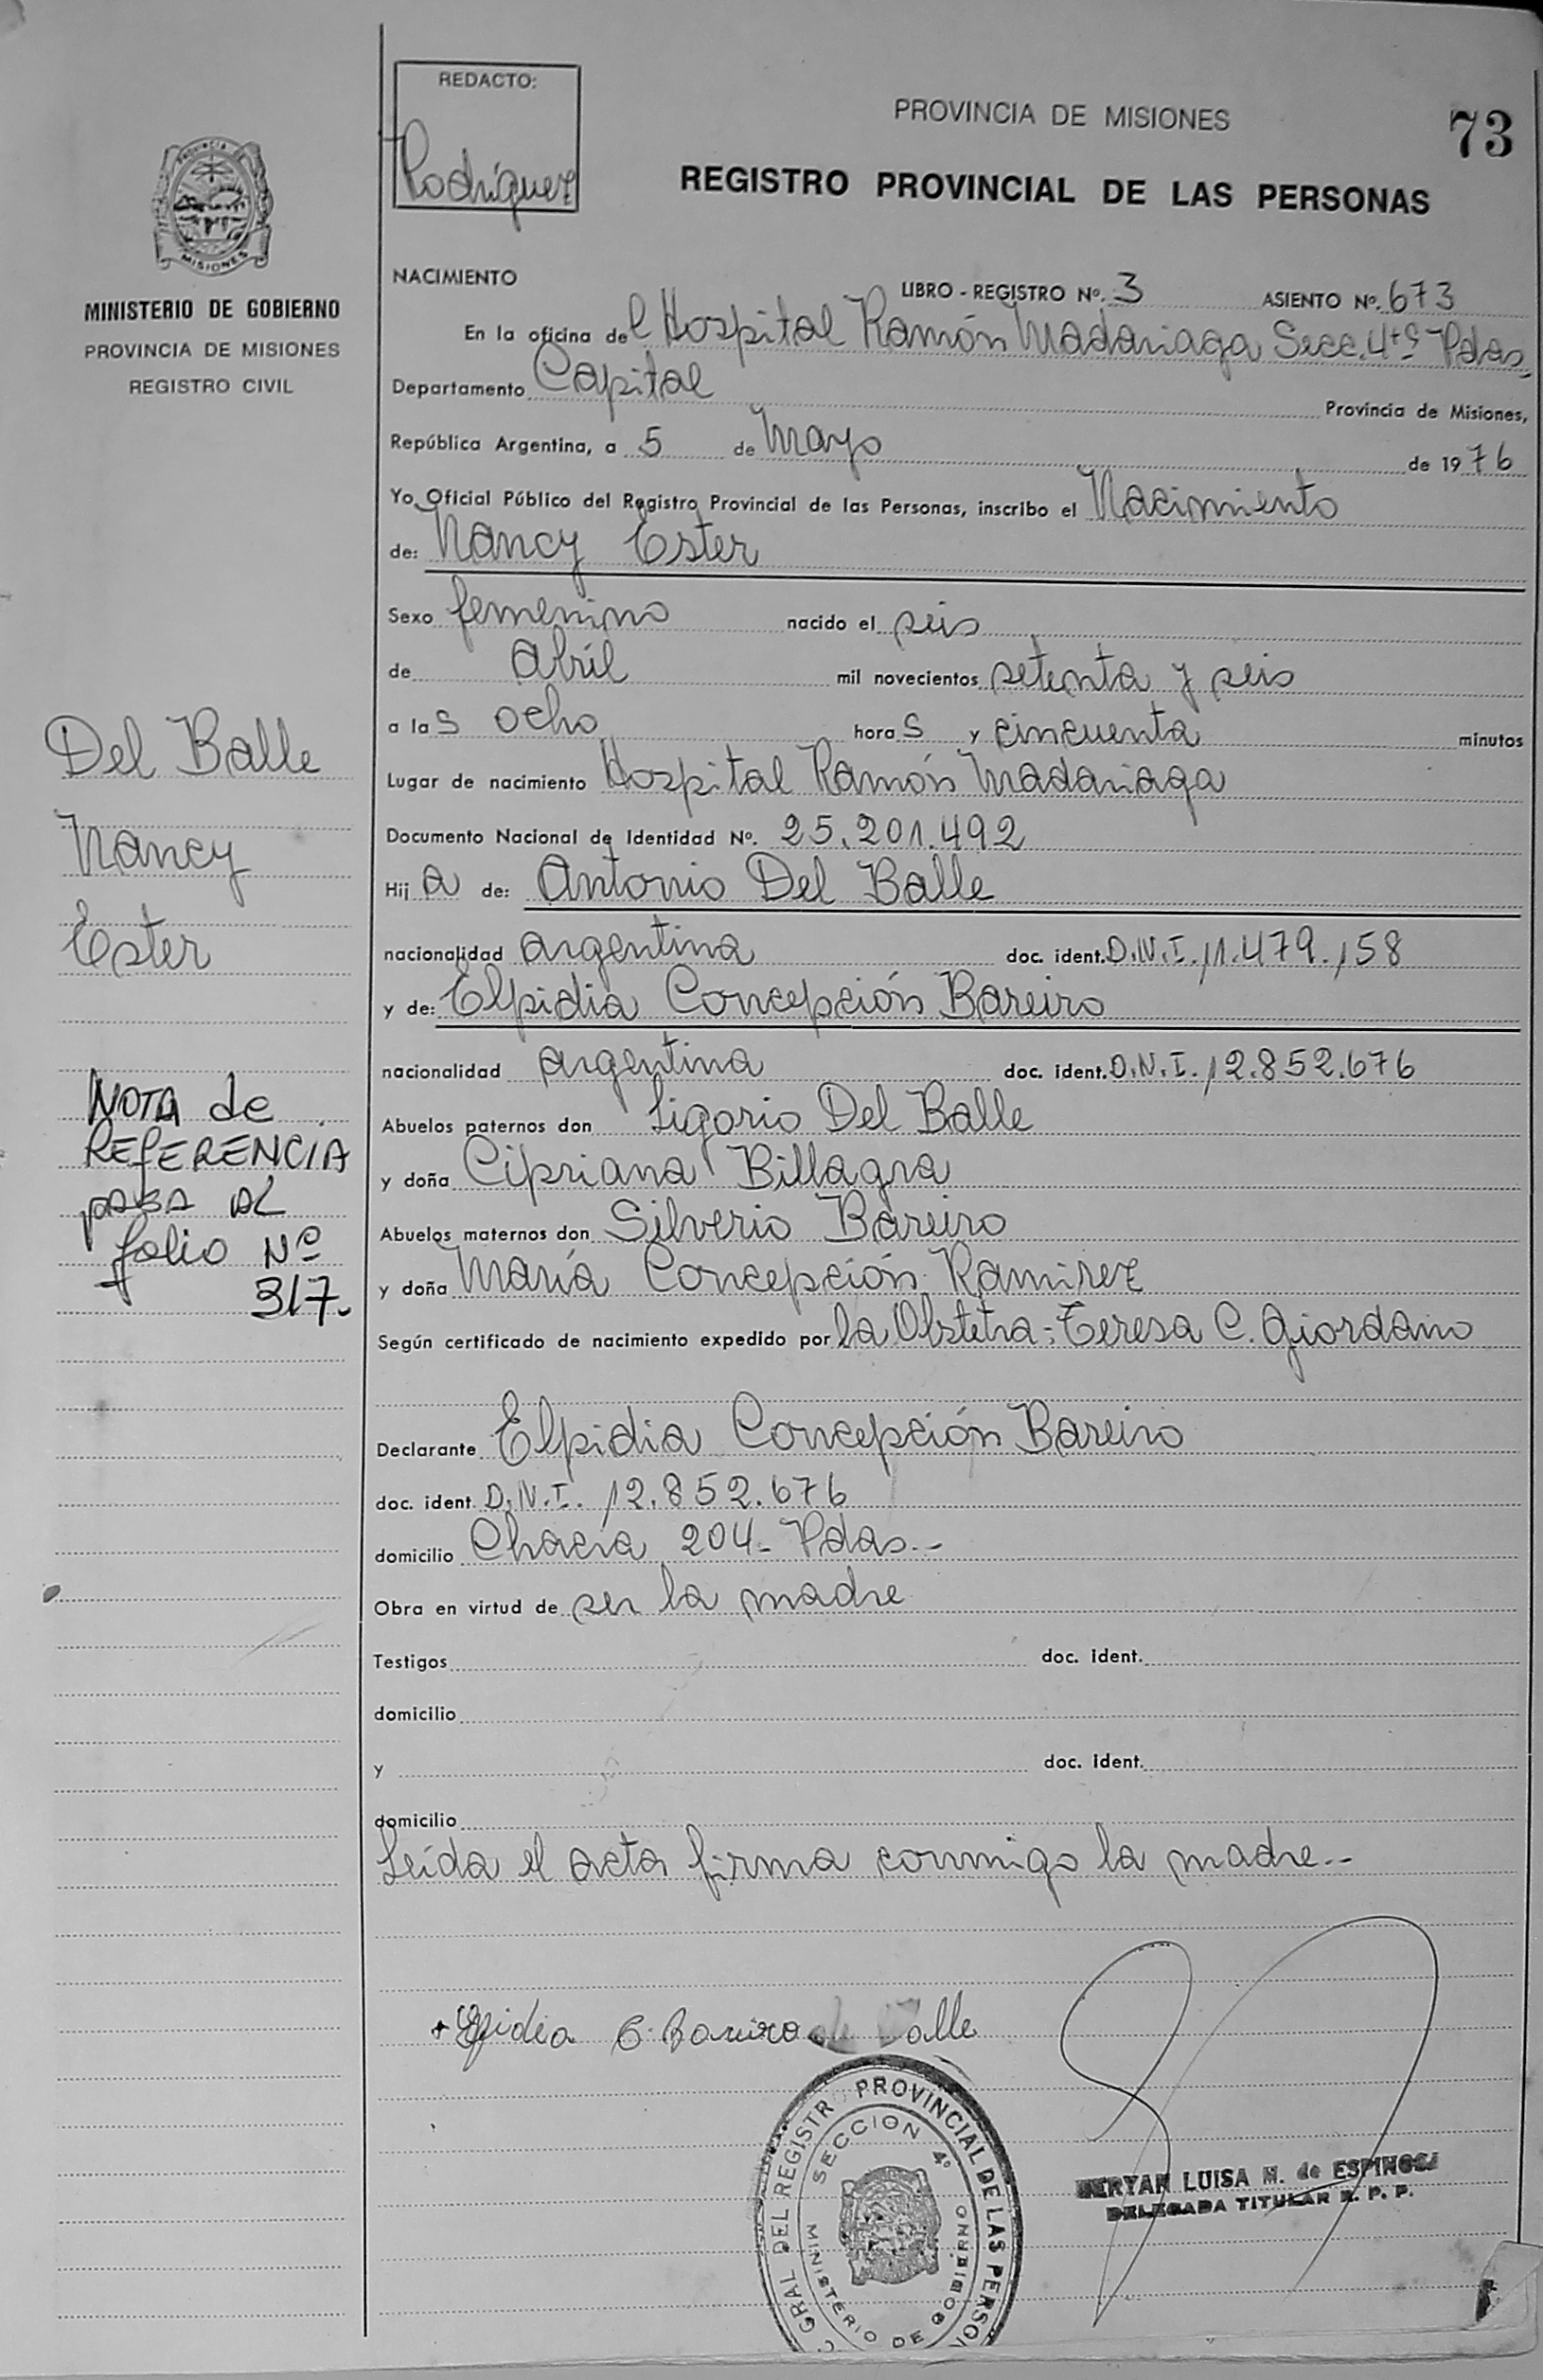 REDACTO:
Rodríguez
PROVINCIA DE MISIONES
73
REGISTRO PROVINCIAL DE LAS PERSONAS
PROVINCIA DE
MISIONES
MINISTERIO DE GOBIERNO
PROVINCIA DE MISIONES
REGISTRO CIVIL
NACIMIENTO
LIBRO - REGISTRO Nº. 3 ASIENTO Nº. 673
En la oficina del Hospital Ramón Madariaga Secc. 4ta Pdas,
Departamento Capital Provincia de Misiones,
República Argentina, a 5 de Mayo de 1976
Yo Oficial Público del Registro Provincial de las Personas, inscribo el Nacimiento
de: Nancy Ester
Sexo femenino nacido el seis
de abril mil novecientos setenta y seis
a las ocho horas y cincuenta minutos
Lugar de nacimiento Hospital Ramón Madariaga
Documento Nacional de Identidad Nº. 25.201.492
Hija de: Antonio Del Balle
nacionalidad argentina doc. ident. D.N.I. 11.479.158
y de: Elpidia Concepción Bareiro
nacionalidad argentina doc. ident. D.N.I. 12.852.676
Abuelos paternos don Ligorio Del Balle
y doña Cipriana Billagra
Abuelos maternos don Silverio Bareiro
y doña María Concepción Ramirez
Según certificado de nacimiento expedido por la Obstetra: Teresa C. Giordano
Declarante Elpidia Concepción Bareiro
doc. ident. D.N.I. 12.852.676
domicilio Chacra 204- Pdas.-
Obra en virtud de ser la madre
Testigos doc. ident.
domicilio
y doc. ident.
domicilio
Leída el acta firma conmigo la madre.-
Del Balle
Nancy
Ester
NOTA de
REFERENCIA
pasa al
folio Nº
317.
Elpidia C. Bareiro de Valle
GRAL DEL REGISTRO PROVINCIAL DE LAS PERSON
SECCION 4º
MINISTERIO DE GOBIERNO
LUISA M. de ESPINOSA
DELEGADA TITULAR R. P. P.